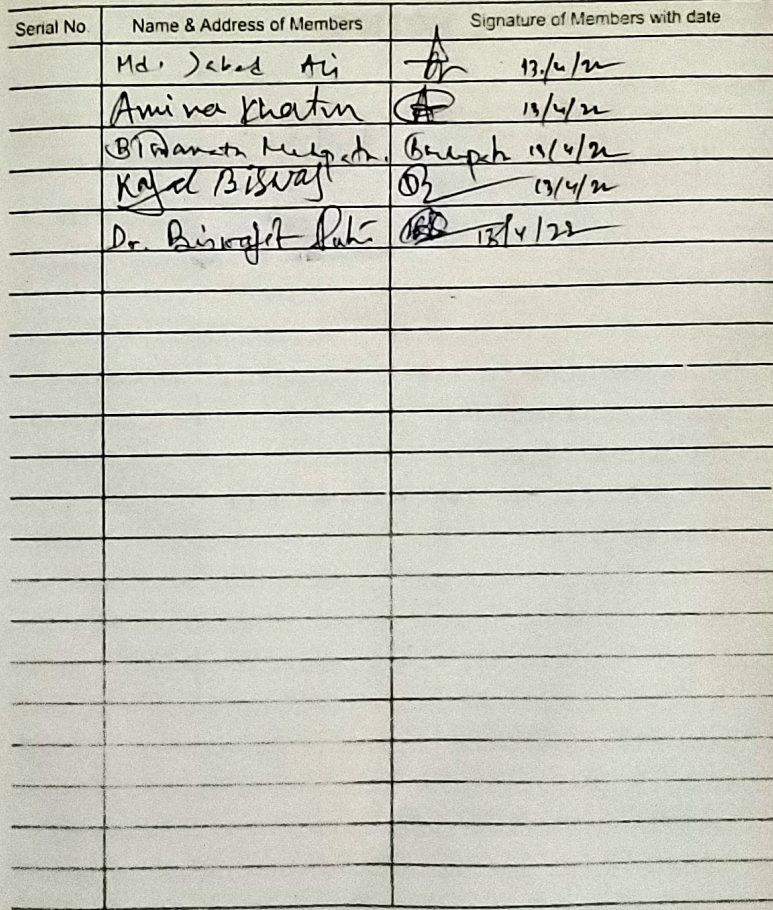 Serial No. Name & Address of Members Signature of Members with date
Md. Jabed Ali 13/4/22
Amina Khatun 13/4/22
Biswanath 13/4/22
Kajal Biswas 13/4/22
Dr. Biswajit 13/4/22